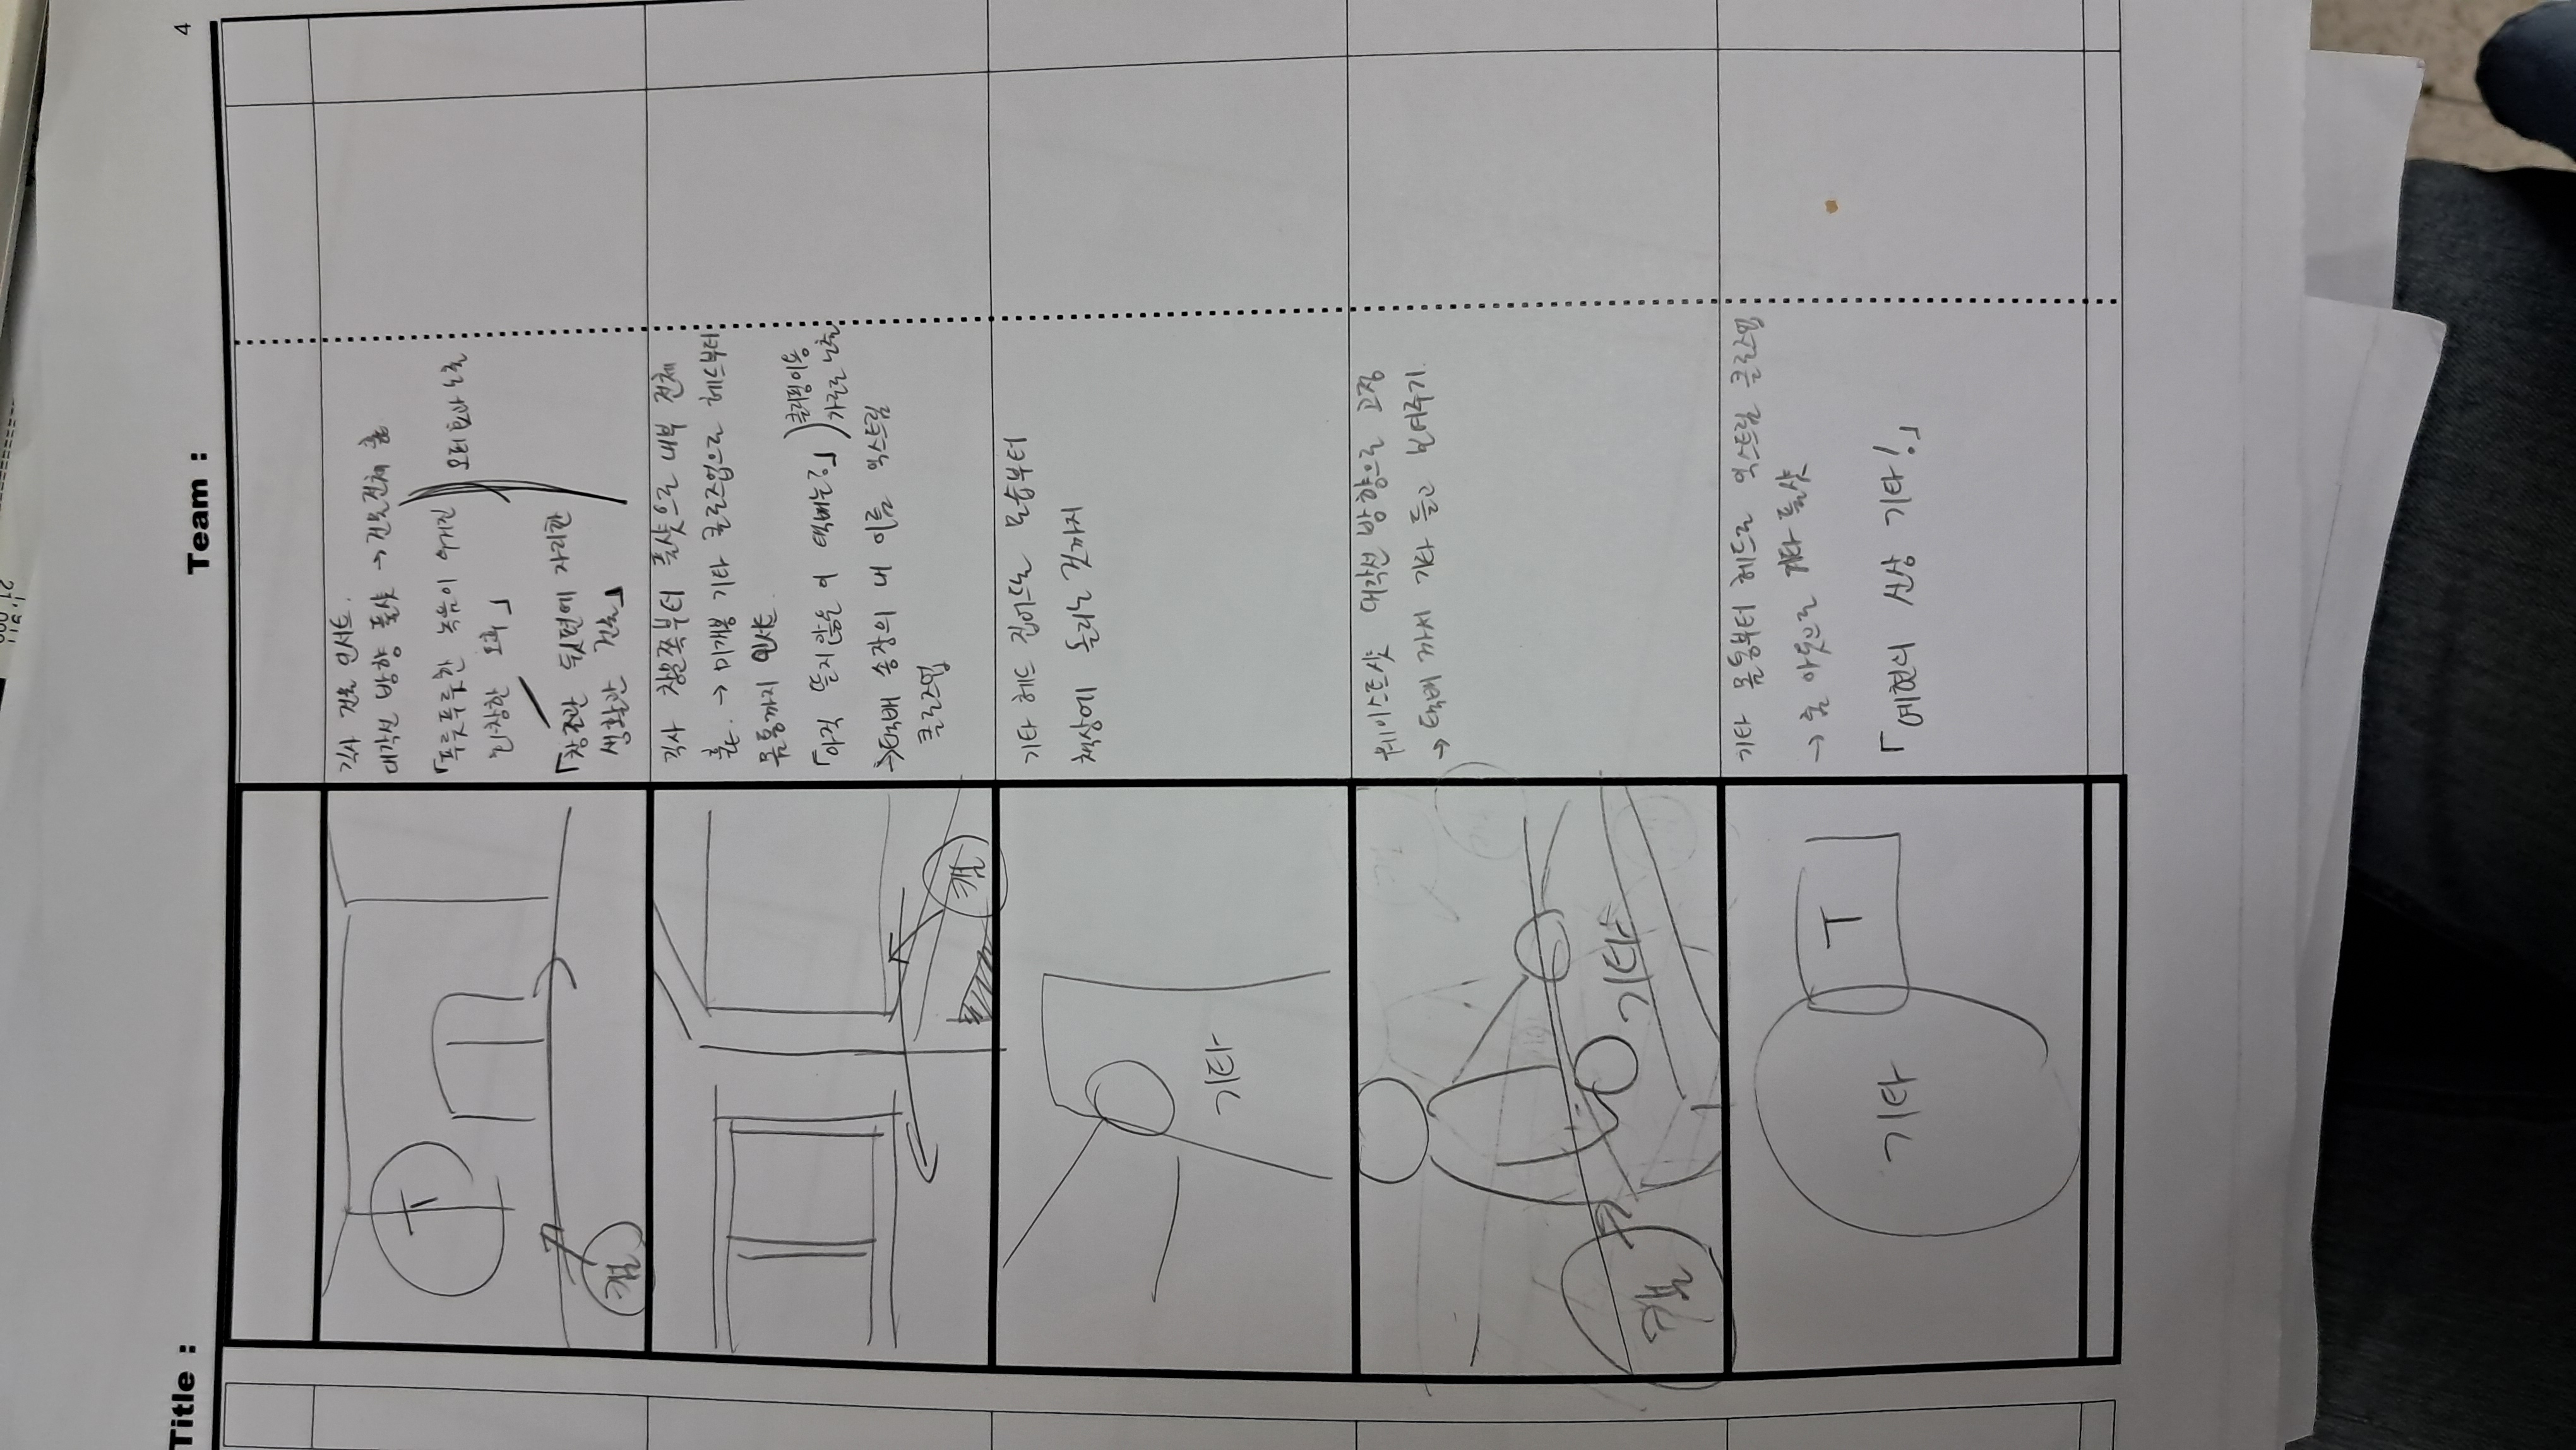 Title :
Team :
4
긱사 건물 인서트.
대각선 방향 풀샷 → 건물전체 훑
「푸릇푸릇한 녹음이 우거진
화창한 오후」
오타효과 노출
「창조관 뒷편에 자리한
생활관 건물」
T
캠
긱사 창문쪽부터 풀샷으로 내부 전체
훑. → 미개봉 기타 클로즈업으로 헤드부터
몸통까지 인서트.
「아직 뜯지않은 이 택배는?」
클리핑이용
가로로 노출
→ 택배 송장의 내 이름 익스트림
클로즈업
캠
기타 헤드 집어드는 모습부터
책상에 올리는 것까지
기타
웨이스트샷 대각선 방향으로 고정
→ 택배 까서 기타 들고 보여주기.
캠
기타
기타 몸통부터 헤드로 익스트림 클로즈업
→ 줌 아웃으로 기타 풀샷
「예현의 신상 기타!」
기타
T